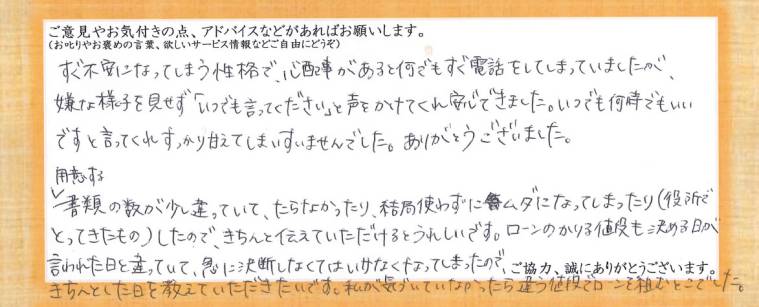 ご意見やお気付きの点、アドバイスなどがあればお願いします。
(お叱りやお褒めの言葉、欲しいサービス情報などご自由にどうぞ)
すぐ不安になってしまう性格で、心配事があると何でもすぐ電話をしてしまっていましたが、
嫌な様子を見せず「いつでも言ってください」と声をかけてくれ安心できました。いつでも何時でもいい
ですと言ってくれすっかり甘えてしまいすいませんでした。ありがとうございました。
用意する
書類の数が少し違っていて、たらなかったり、結局使わずにムダになってしまったり(役所で
とってきたもの)したので、きちんと伝えていただけるとうれしいです。ローンのかりる値段も決める日が
言われた日と違っていて、急に決断しなくてはいけなくなってしまったので、
ご協力、誠にありがとうございます。
きちんとした日を教えていただきたいです。私が気づいていなかったら違う値段でローンを組むとこでした。